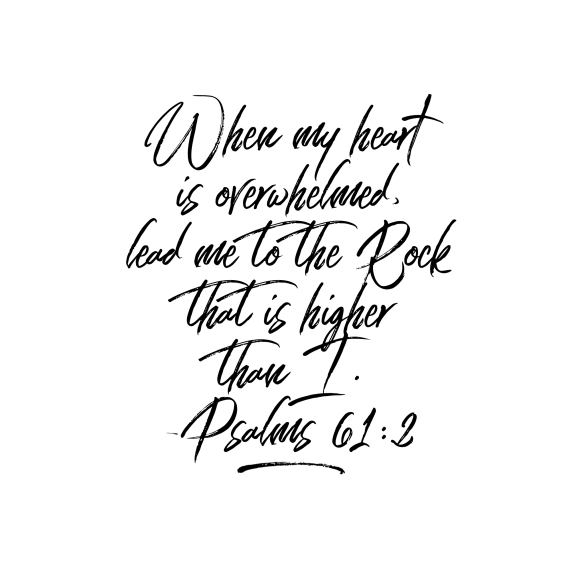 When my heart
is overwhelmed,
lead me to the Rock
that is higher
than I.
Psalms 61:2